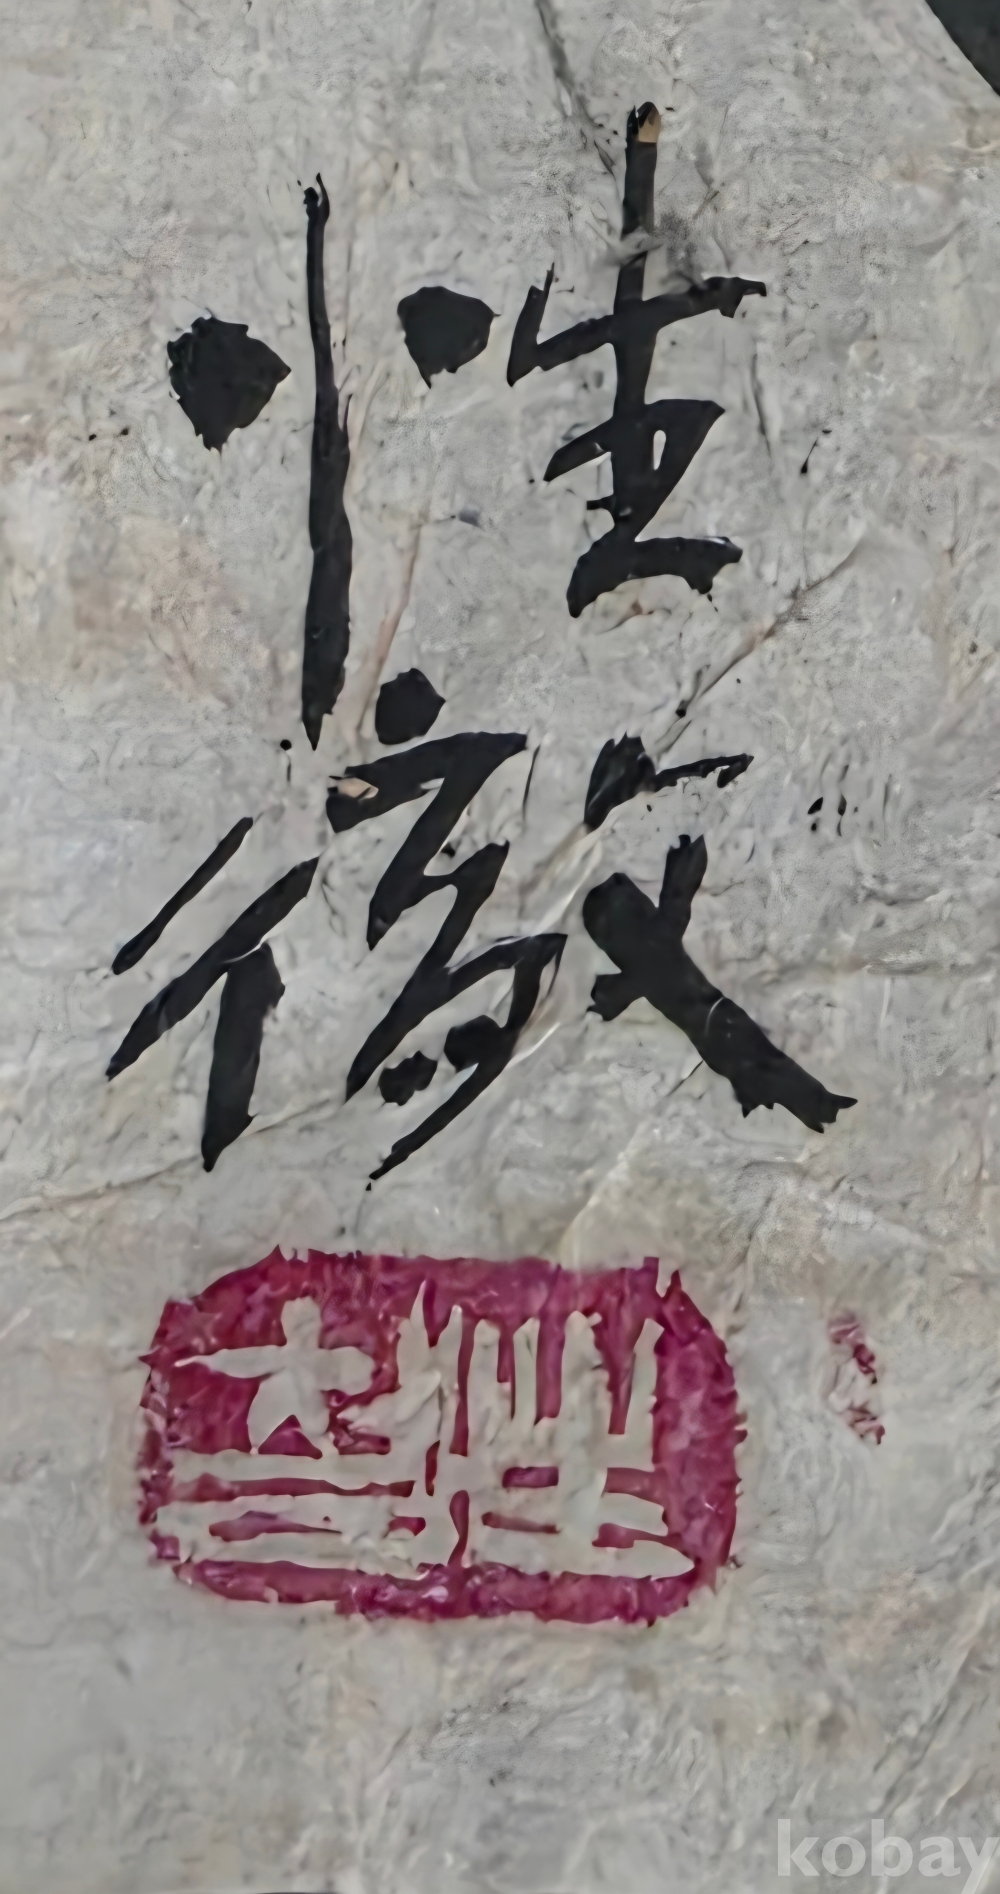 性
徹
kobay